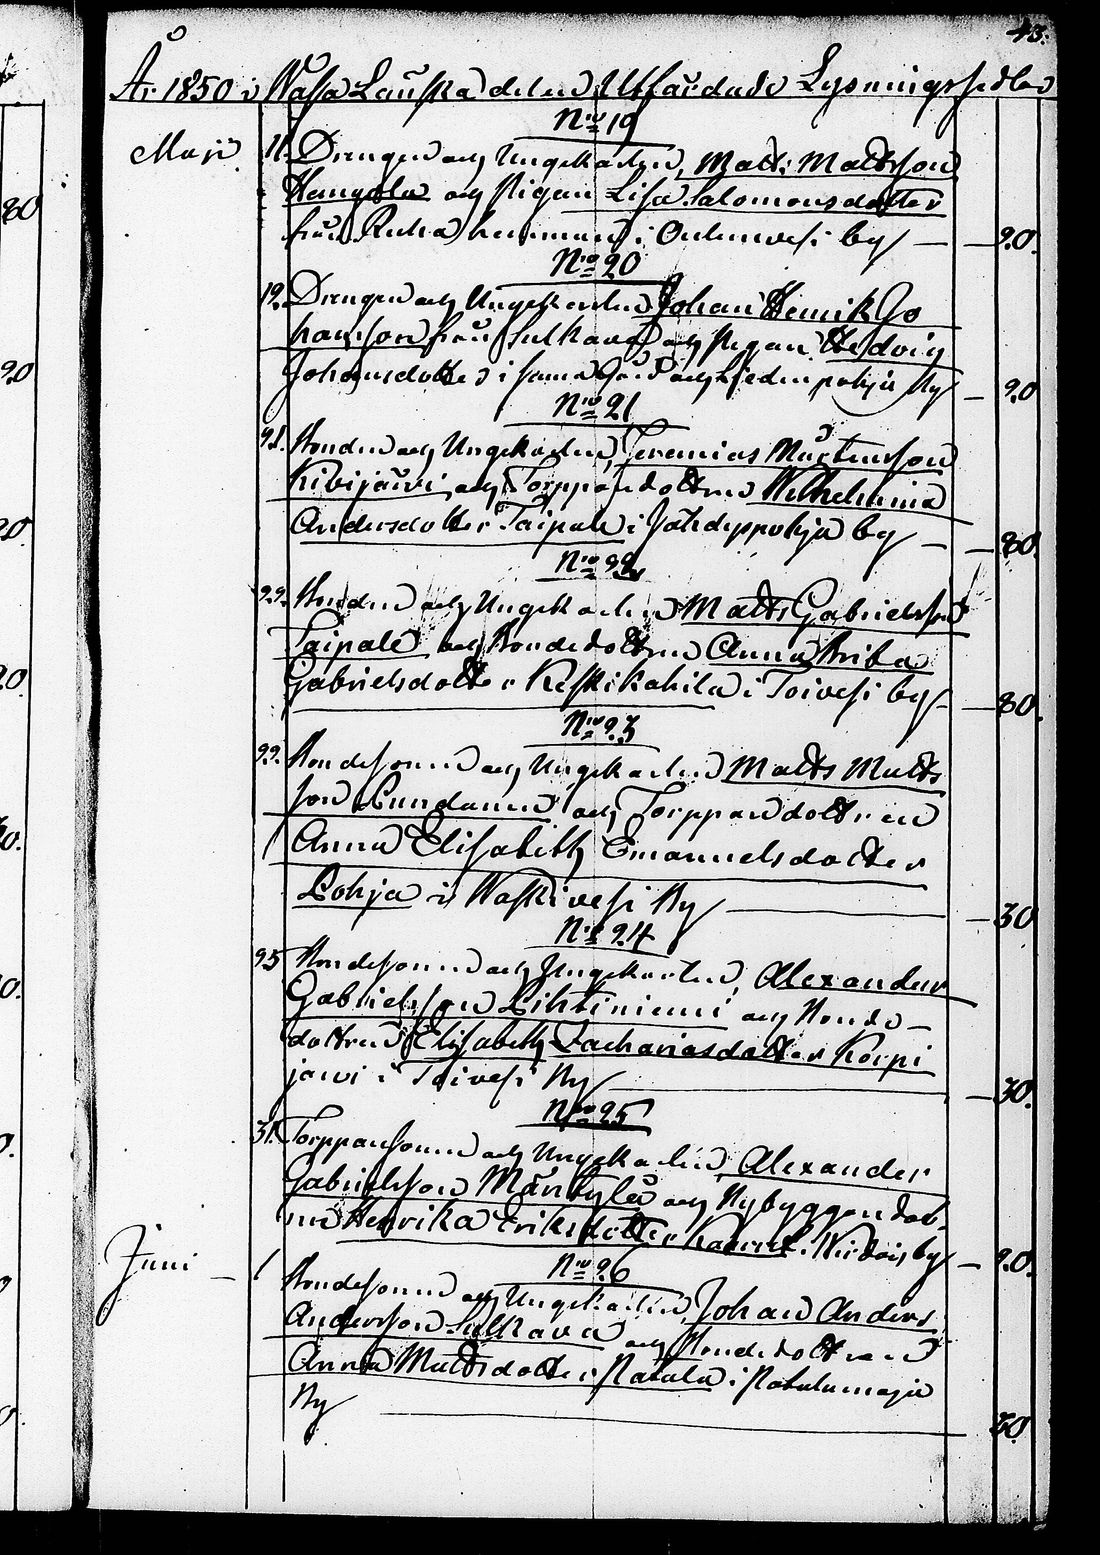 43.
År 1850 i Wasa Länska delen Utfärdade Lysningssedlar
No 19
Maji 11. Drengen och Ungekarlen, Matts Mattsson
Hangola och Pigan Lisa Salomonsdotter
från Ruha hemman i Ouluvesi by — 20.
No 20
12. Drengen och Ungekarlen Johan Henrik Jo
hansson från Sulkava och Pigan Hedvig
Johansdotter i samma Gård och by — 20
No 21
Bonden och Ungekarlen, Jeremias Mårtensson
Kivijärvi och Torppardottren Wilhelmina
Andersdotter Taipale i Jähdyspohja by — 80.
No 22
22. Bonden och Ungekarlen Matts Gabrielsson
Taipale och Bondedottren Anna Brita
Gabrielsdotter Keskikahila i Toivesi by — 80.
No 23
22. Bondesonen och Ungekarlen Matts Matts
son Lundanen och Torppardottren
Anna Elisabeth Emanuelsdotter
Lohja i Waskivesi By — 30
No 24
25 Bondesonen och Ungekarlen, Alexander
Gabrielsson Lihtiniemi och Bonde-
dottren Elisabeth Zachariasdotter Korpi
järvi i Toivesi By — 30.
No 25
31. Torpparsonen och Ungekarlen Alexander
Gabrielsson Mäntylä och Nybyggardott.
Henrika Eriksdotter Wirdois by — 20.
No 26
Juni — 1 Bondesonen och Ungekarlen, Johan Anders
Andersson Sulkava och Bondedottren
Anna Mattsdotter Ratala i Ratalamaja
By — 30